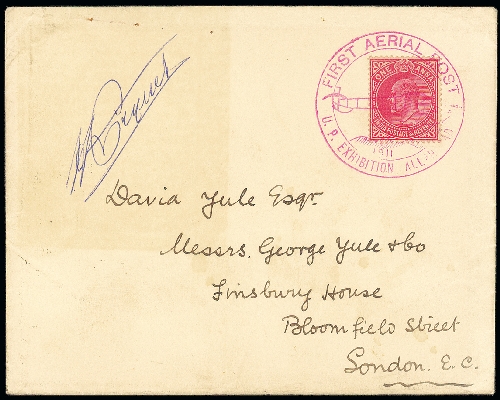 H. Pequet
FIRST AERIAL POST
ONE ANNA
1911
U. P. EXHIBITION ALLA
David Yule Esqr.
Messrs. George Yule & Co
Finsbury House
Bloomfield Street
London. E. C.